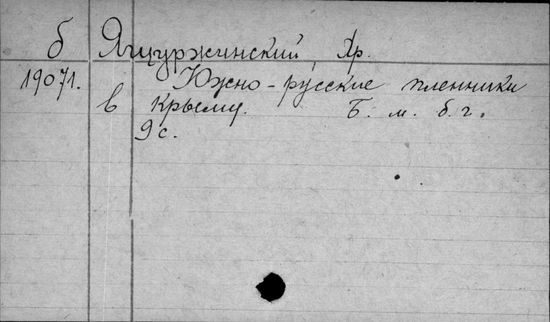 б Ящуржинский, Хр.
19071. Южно-русские пленники
в Крыму. Б. м. б. г.
9 с.